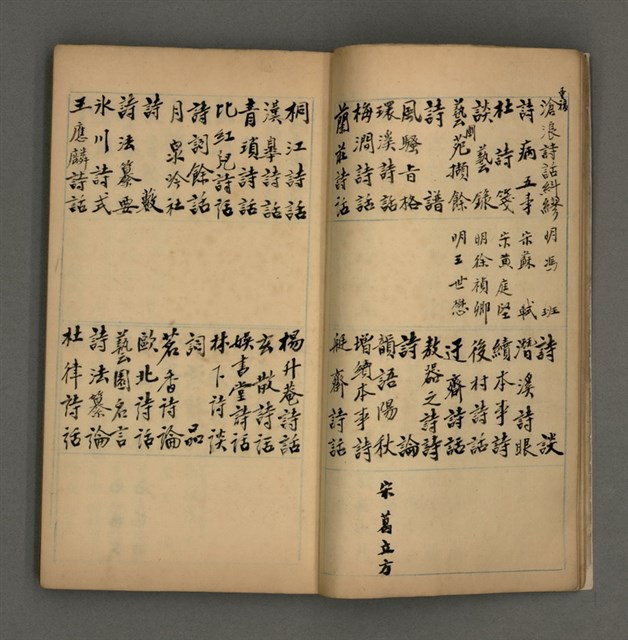 滄浪詩話糾繆 明馮班
詩病五事 宋蘇軾
杜詩箋 宋黃庭堅
談藝錄 明徐禎卿
藝苑擷餘 明王世懋
詩譜
風騷旨格
環溪詩話
梅澗詩話
蘭莊詩話
詩談
潛溪詩眼
續本事詩
後村詩話
迂齋詩話
敖器之詩話
詩論
韻語陽秋 宋葛立方
增續本事詩
艇齋詩話
桐江詩話
漢皋詩話
青瑣詩話
比紅兒詩話
詩詞餘話
月泉吟社
詩藪
詩法纂要
冰川詩式
王應麟詩話
楊升菴詩話
玄散詩話
娛書堂詩話
林下詩談
詞品
茗香詩論
歐北詩話
藝圃名言
詩法纂論
杜律詩話